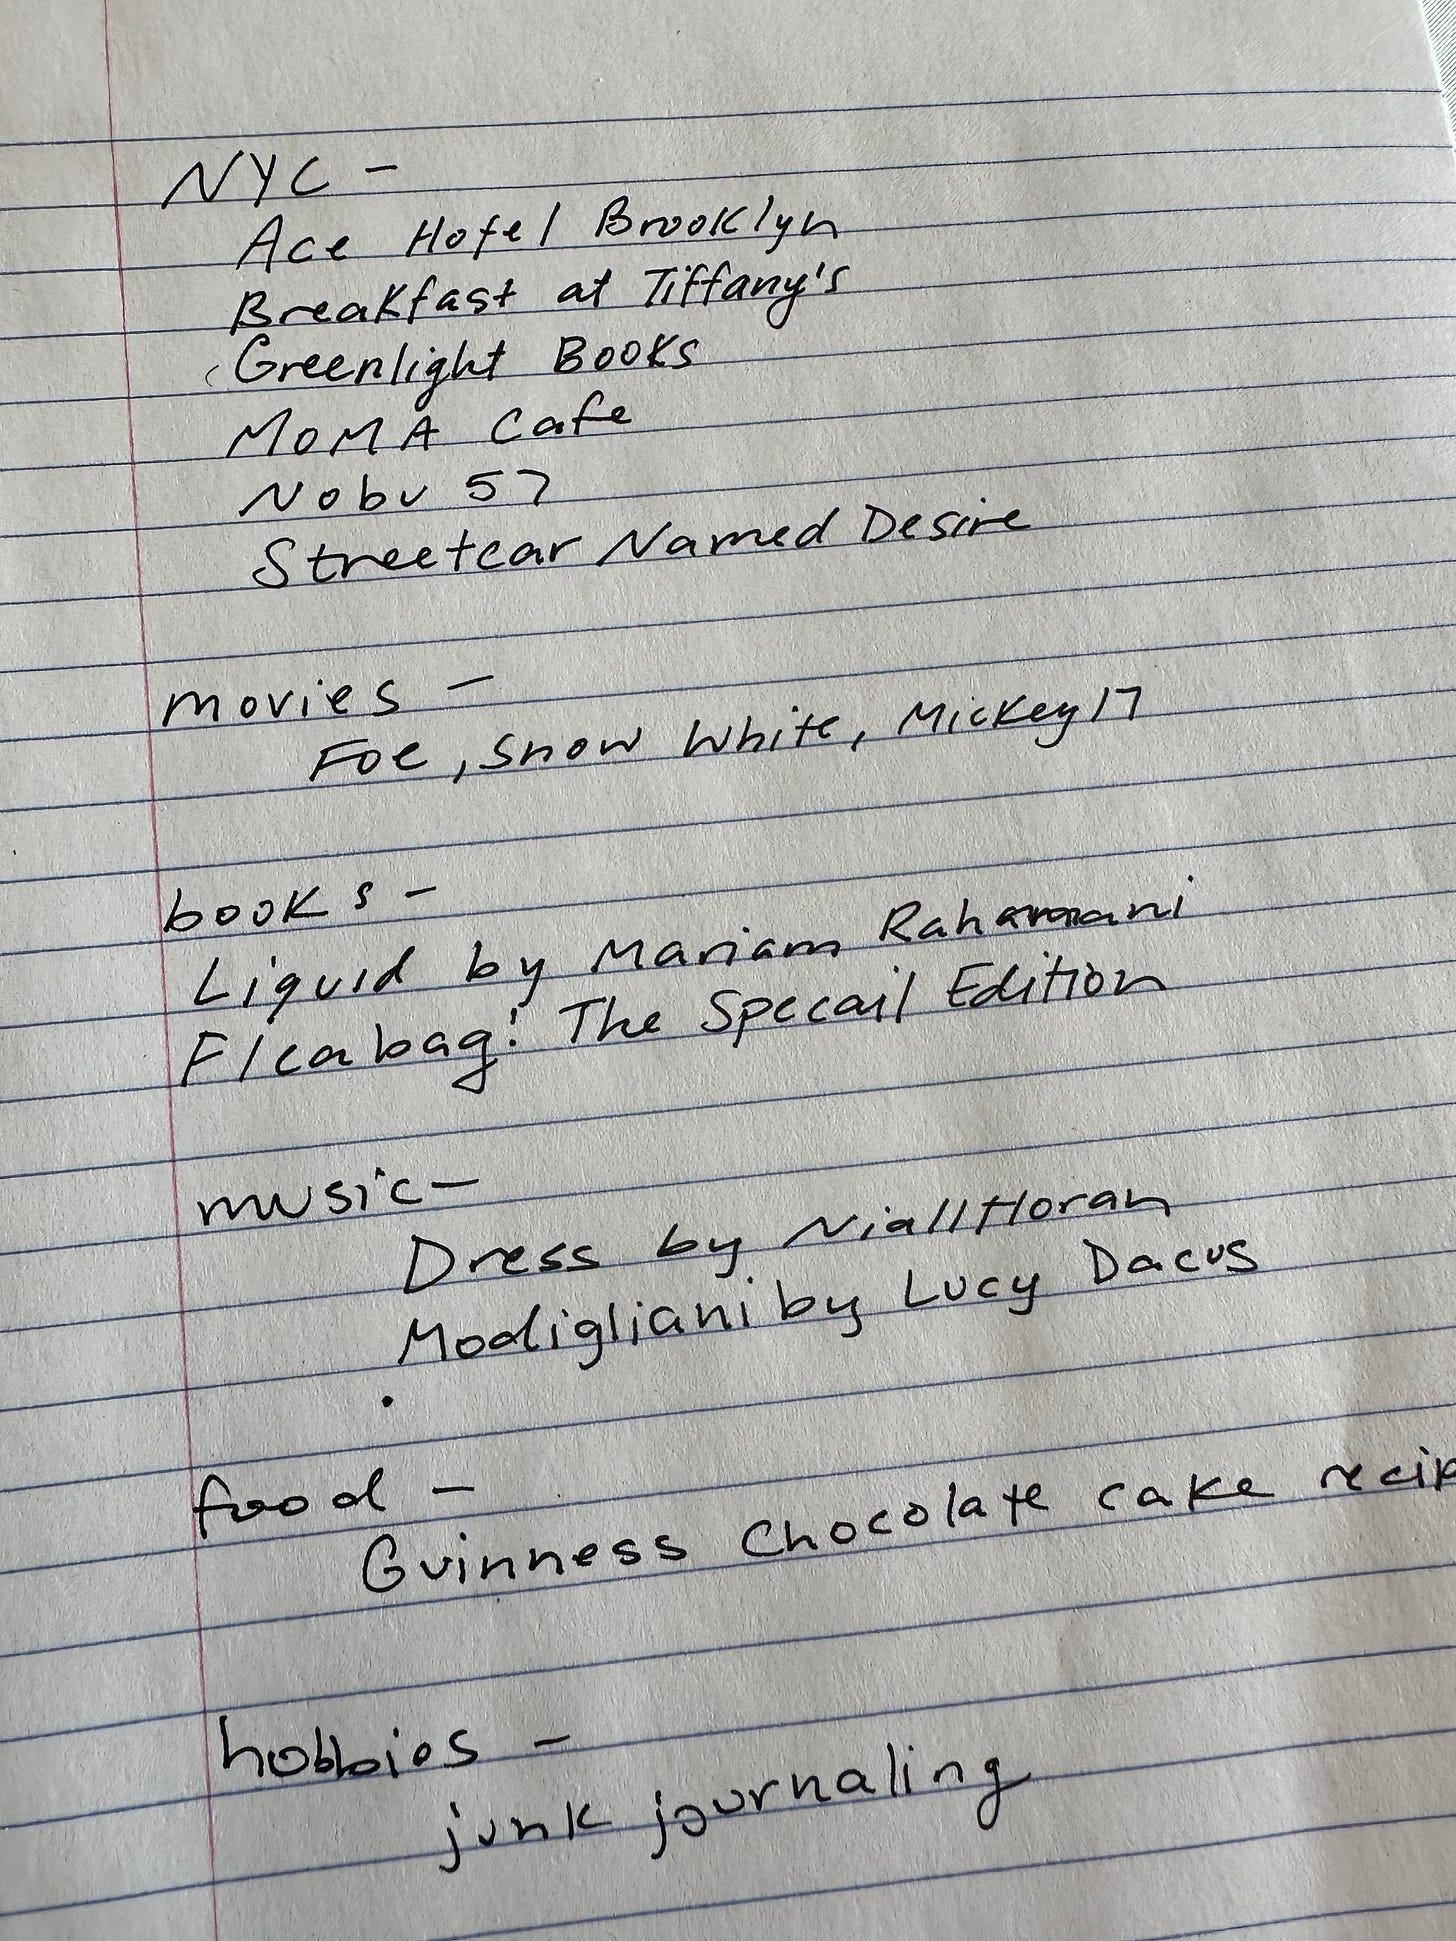 NYC -
Ace Hotel Brooklyn
Breakfast at Tiffany's
Greenlight Books
MOMA Cafe
Nobu 57
Streetcar Named Desire
movies -
Foe, Snow White, Mickey17
books -
Liquid by Mariam Rahamani
Fleabag: The Specail Edition
music -
Dress by Niall Horan
Modigliani by Lucy Dacus
food -
Guinness Chocolate cake recip
hobbies -
junk journaling